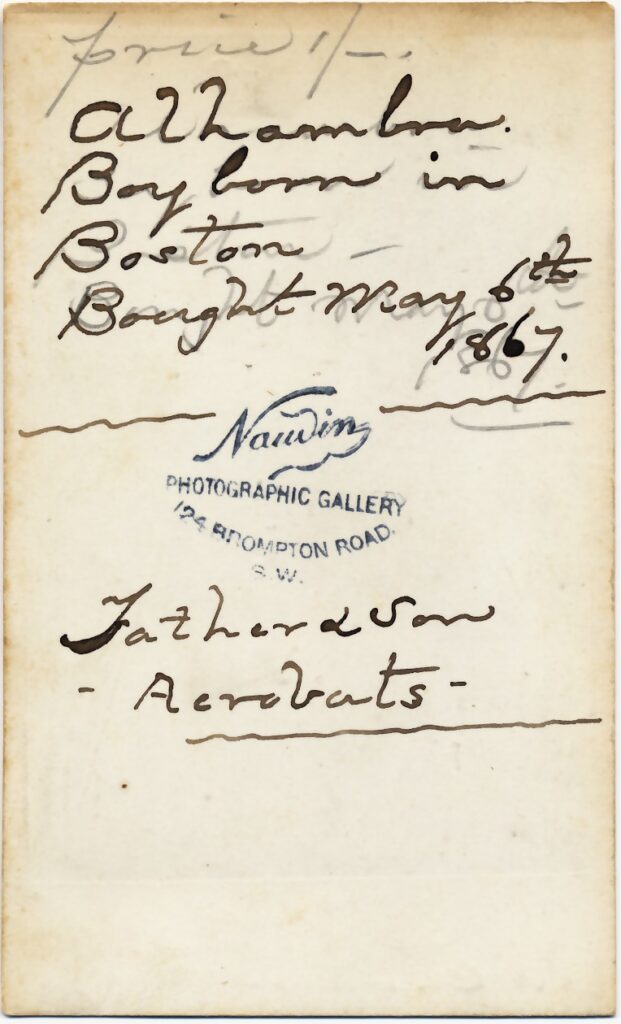 price 1/-.
Alhambra.
Boy born in
Boston -
Bought May 6th
1867.
Naudin
PHOTOGRAPHIC GALLERY
124 BROMPTON ROAD.
S.W.
Father & Son
- Acrobats -